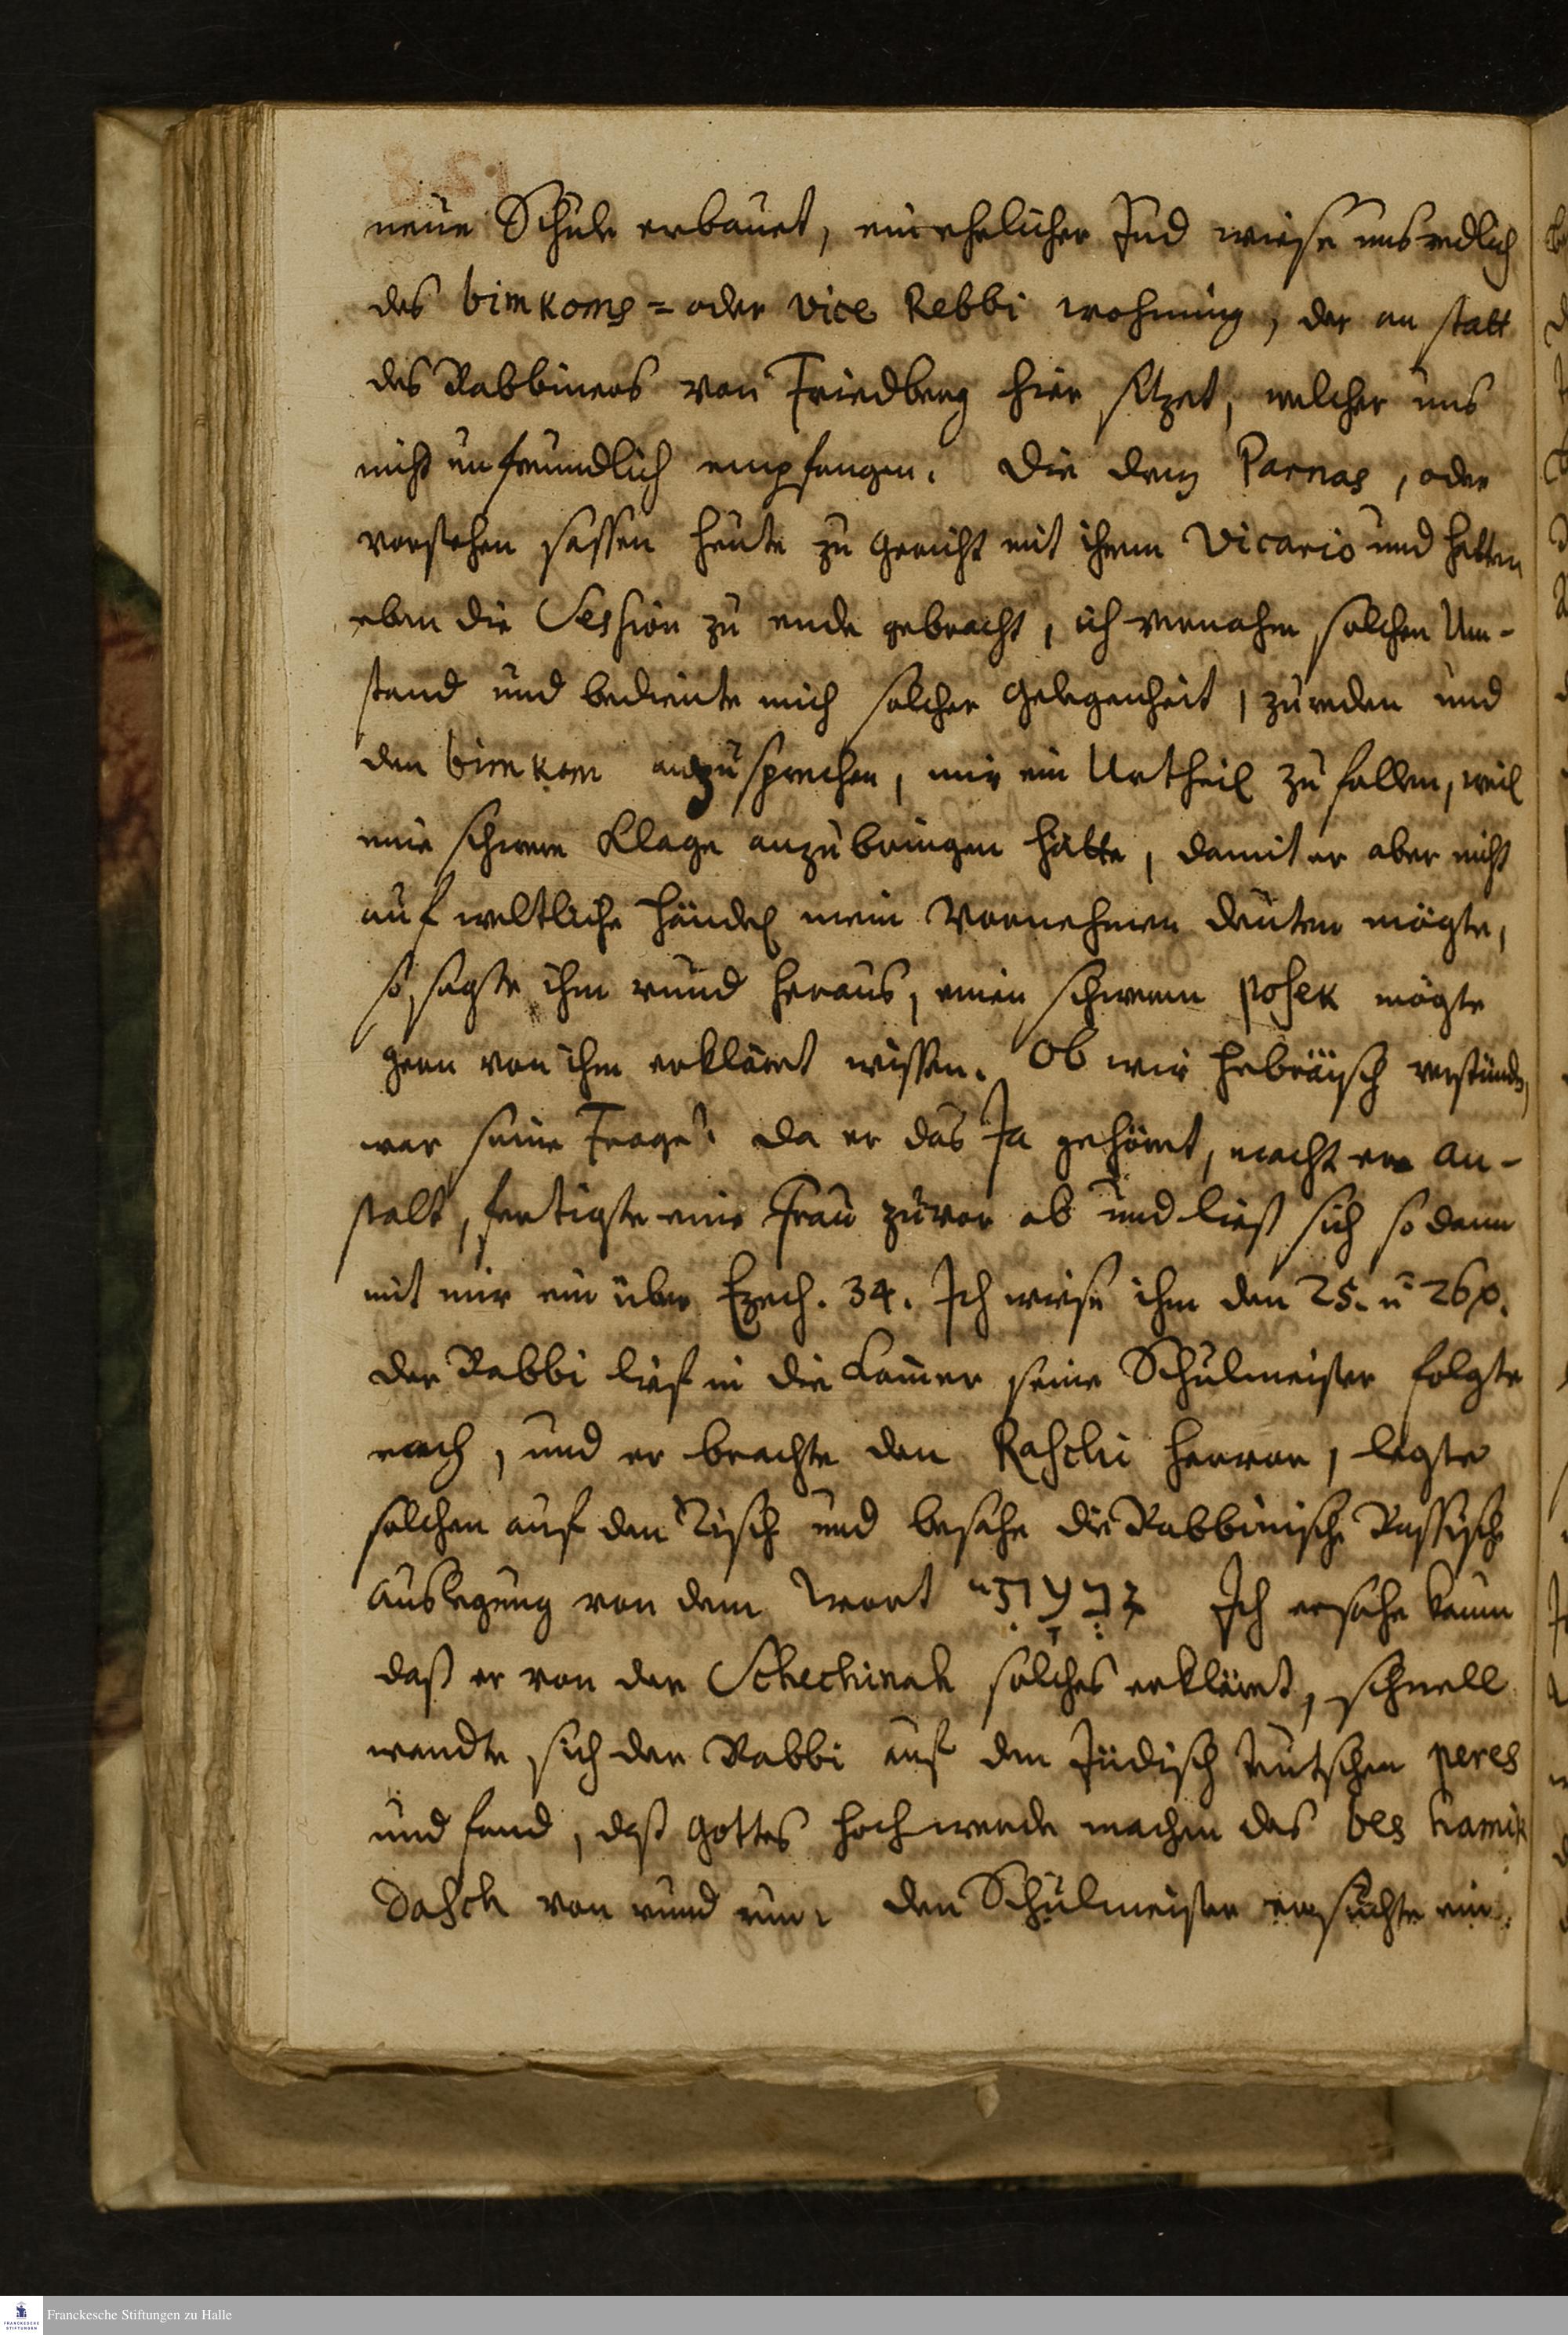 neue Schule erbauet, ein ehelicher Jud wiese uns redlich
des bimkoms = oder vice Rebbi wohnung, der an statt
des Rabbiners von Friedberg hier sitzet, welcher uns
nicht unfreundlich empfangen. Die drey Parnas, oder
vorstehen sassen heute zu gericht mit ihrem Vicario und hatten
eben die Session zu ende gebracht, ich vernahm solchen Um-
stand und bediente mich solcher gelegenheit, zu reden und
den bimkom anzusprechen, mir ein Urtheil zu fallen, weil
eine schwere Klage anzubringen hätte, damit er aber nicht
auf weltliche händel mein Vornehmen deuten mögte,
so sagte ihm rund heraus, einen schweren posek mögte
gern von ihm erklärt wissen. Ob wir hebräisch verstünden,
war seine Frage. da er das Ja gehöret, macht er an-
stalt, fertigte eine Frau zuvor ab und ließ sich so dann
mit mir ein über Ezech. 34. Ich wiese ihm den 25. u 26
der Rabbi lief in die Kammer seine Schulmeister folgte
nach, und er brachte den Raschi hervor, legte
solchen auf den Tisch und besahe die Rabbinische Rassische
auslegung von dem Wort גבעתי Ich ersahe kaum
daß er von der Schechinah solches erkläret, schnell
wandte sich der Rabbi auf den Jüdisch teutschen peres
und fand, daß Gottes hoch werde machen das bes hamik
dasch von rund um. den Schulmeister ersuchte ein
Franckesche Stiftungen zu Halle